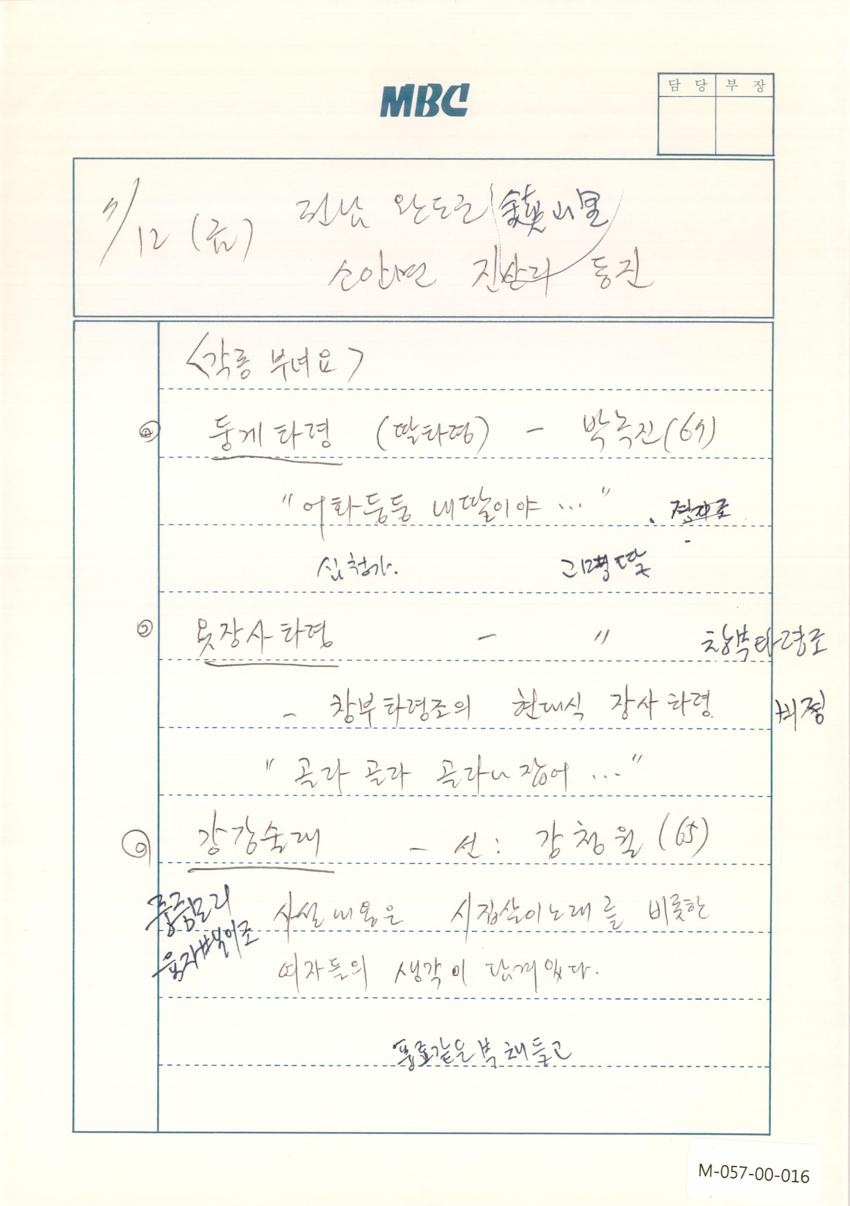 MBC
담 당 부 장
7/12 (금) 전남 완도군 鎭山里
소안면 진산리 동진
<각종 부녀요>
둥게타령 (딸타령) - 박녹진(67)
"어화둥둥 내딸이야 ..."
심청가.
◎ 옷장사타령 - " 창부타령조
- 창부타령조의 현대식 장사타령 비정
"골라 골라 골라나 잡어 ..."
◎ 강강술래 - 선: 강청월 (65)
중중모리
사설내용은 시집살이노래를 비롯한
육자배기조
여자들의 생각이 담겨있다.
같은 북채들고
M-057-00-016